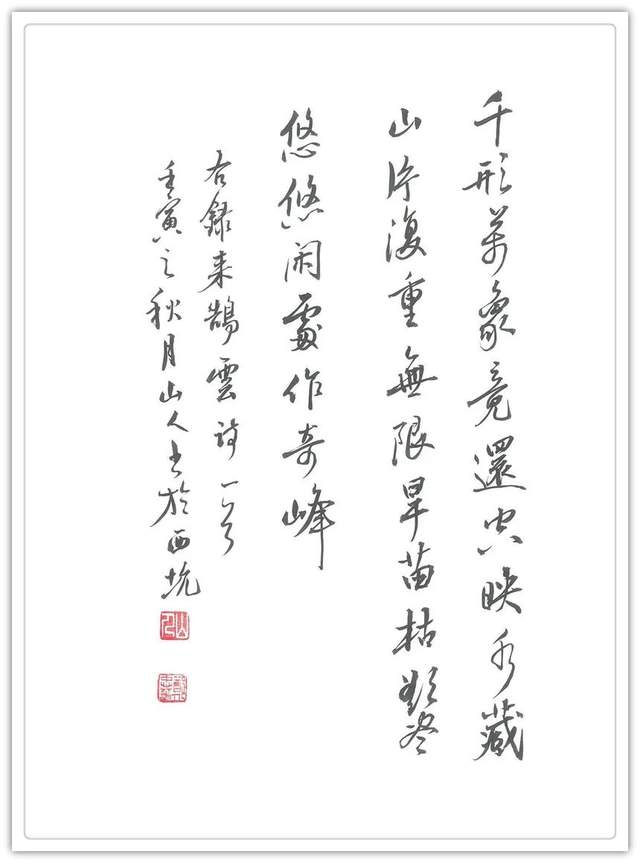 千形萬象竟還空映水藏
山片復重無限旱苗枯欲尽
悠悠闲處作奇峰
右錄来鵠雲詩一首
壬寅之秋月山人书於西坑
山人